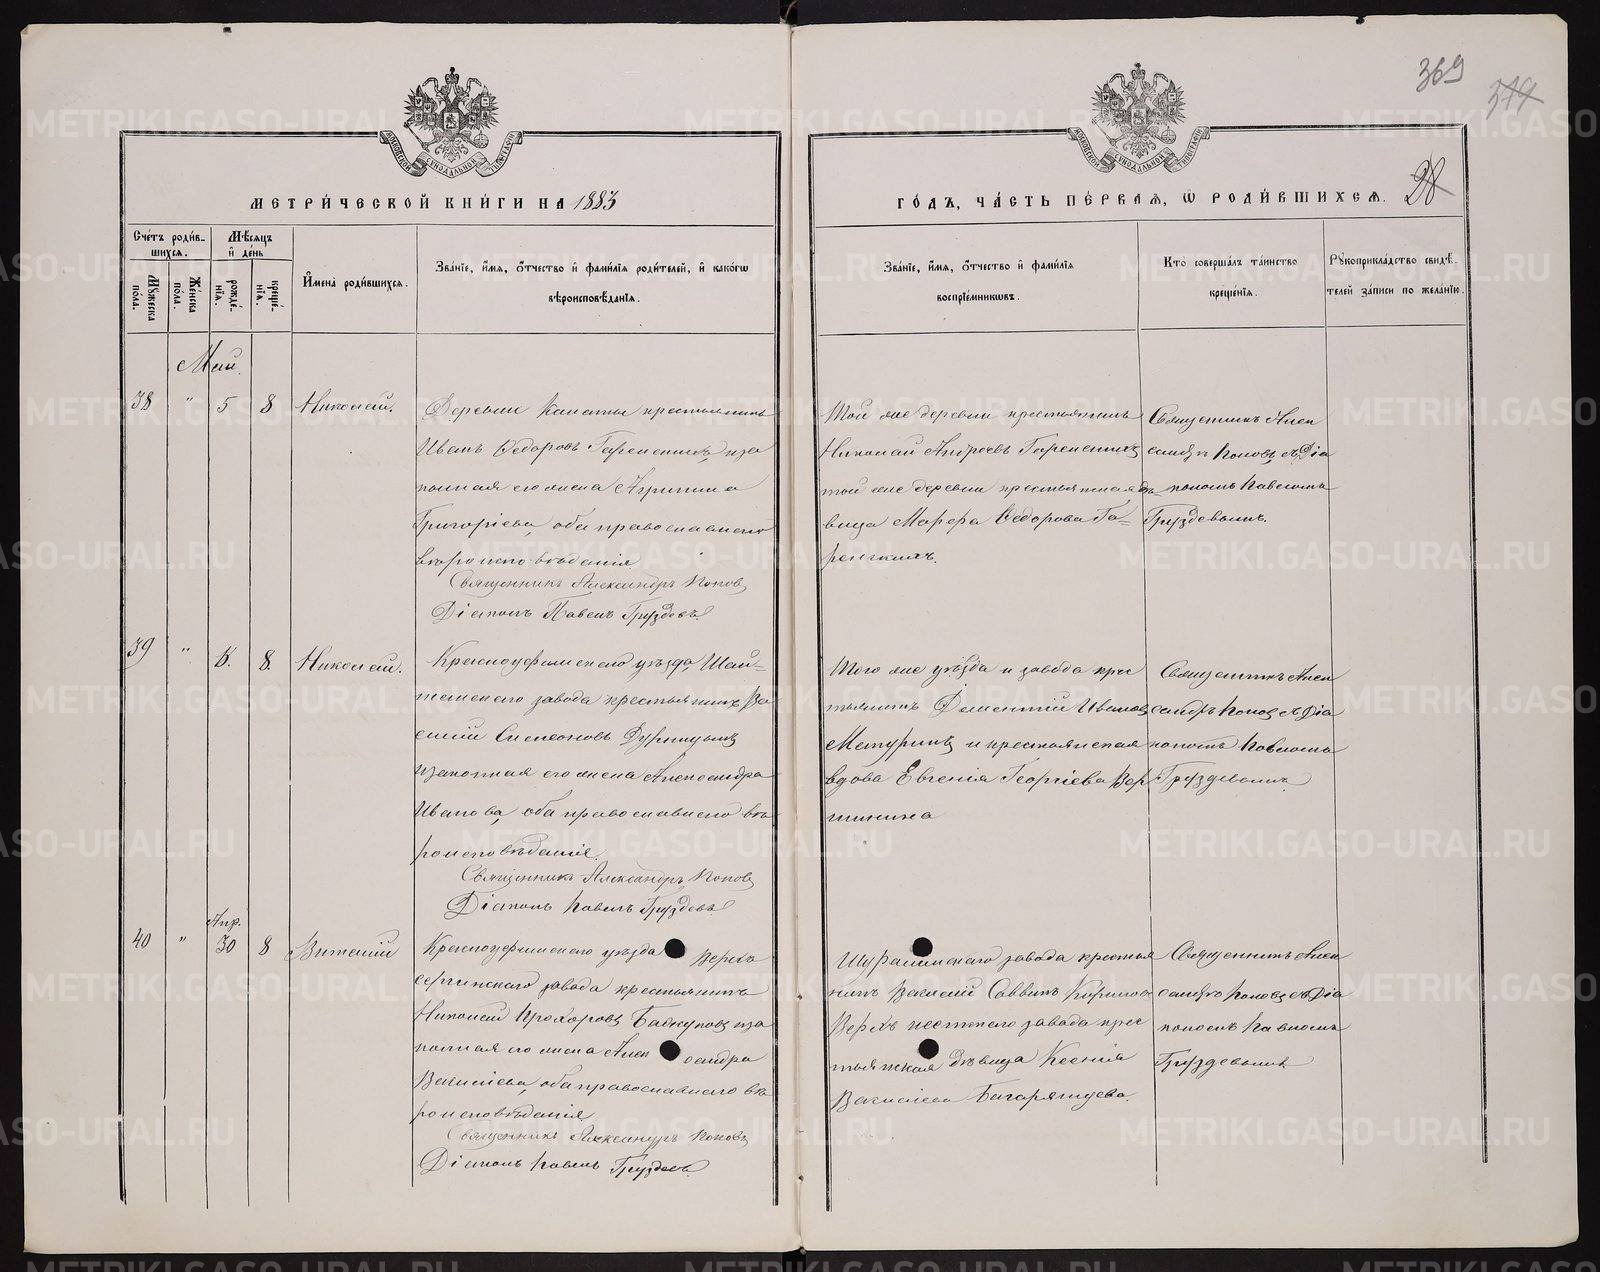 369
379
28
МОСКОВСКОЙ СѴНОДАЛЬНОЙ ТИПОГРАФІИ
МОСКОВСКОЙ СѴНОДАЛЬНОЙ ТИПОГРАФІИ
МЕТРИ́ЧЕСКОЙ КНИ́ГИ НА 1883
ГО́ДЪ, ЧА́СТЬ ПЕ́РВАЯ, Ѡ РОДИ́ВШИХСЯ.
Сче́тъ роди́в-
шихся.
Мꙋжеска по́ла.
Же́нска по́ла.
Мѣ́сяцъ
и҆ де́нь
рожде́-нїя.
креще́-нїя.
И҆мена̀ роди́вшихся.
Зва́нїе, и҆́мя, ѻ҆́тчество и҆ фами́лїя роди́телей, и҆ како́гѡ
вѣроисповѣ́данїя.
Зва́нїе, и҆́мя, ѻ҆́тчество и҆ фами́лїя
воспрїе́мникѡвъ.
Кто̀ соверша́лъ та́инство
креще́нїя.
Рꙋкоприкла́дство свидѣ́-
телей за́писи по жела́нїю.
Май.
38 " 5 8 Николай.
Деревни крестьянинъ
Иванъ Ѳедоровъ и за
конная его жена Агрипина
Григоріева, оба православнаго
вѣроисповѣданія.
Священникъ Александръ Поповъ
Діаконъ Павелъ Груздевъ
Той же деревни крестьянинъ
Николай Андреевъ
той же деревни крестьянская дѣ-
вица Марфа Ѳедорова Га-
Священникъ Алек
сандръ Поповъ съ Діа
кономъ Павломъ
Груздевымъ.
39 " 6. 8. Николай.
Красноуфимскаго уѣзда, Шай-
танскаго завода крестьянинъ Ва
силій Симеоновъ
и законная его жена Александра
Иванова, оба православнаго вѣ
роисповѣданія.
Священникъ Александръ Поповъ
Діаконъ Павелъ Груздевъ
Того же уѣзда и завода крес
тьянинъ Дементій Ивановъ
Матуринъ и крестьянская
вдова Евгенія Георгіева Вер
шинина
Священникъ Алек
сандръ Поповъ съ Діа
кономъ Павломъ
Груздевымъ
40 " Апр. 30 8 Виталій
Красноуфимскаго уѣзда Верхъ
сергинскаго завода крестьянинъ
Николай Прохоровъ и за
конная его жена Алек сандра
Василіева, оба православнаго вѣ
роисповѣданія
Священникъ Александръ Поповъ
Діаконъ Павелъ Груздевъ
завода крестья
нинъ Василій Саввинъ
Верхъ завода крес
тьянская дѣвица Ксенія
Василіева Багарятцева.
Священникъ Алек
сандръ Поповъ съ Діа
кономъ Павломъ
Груздевымъ
METRIKI.GASO-URAL.RU